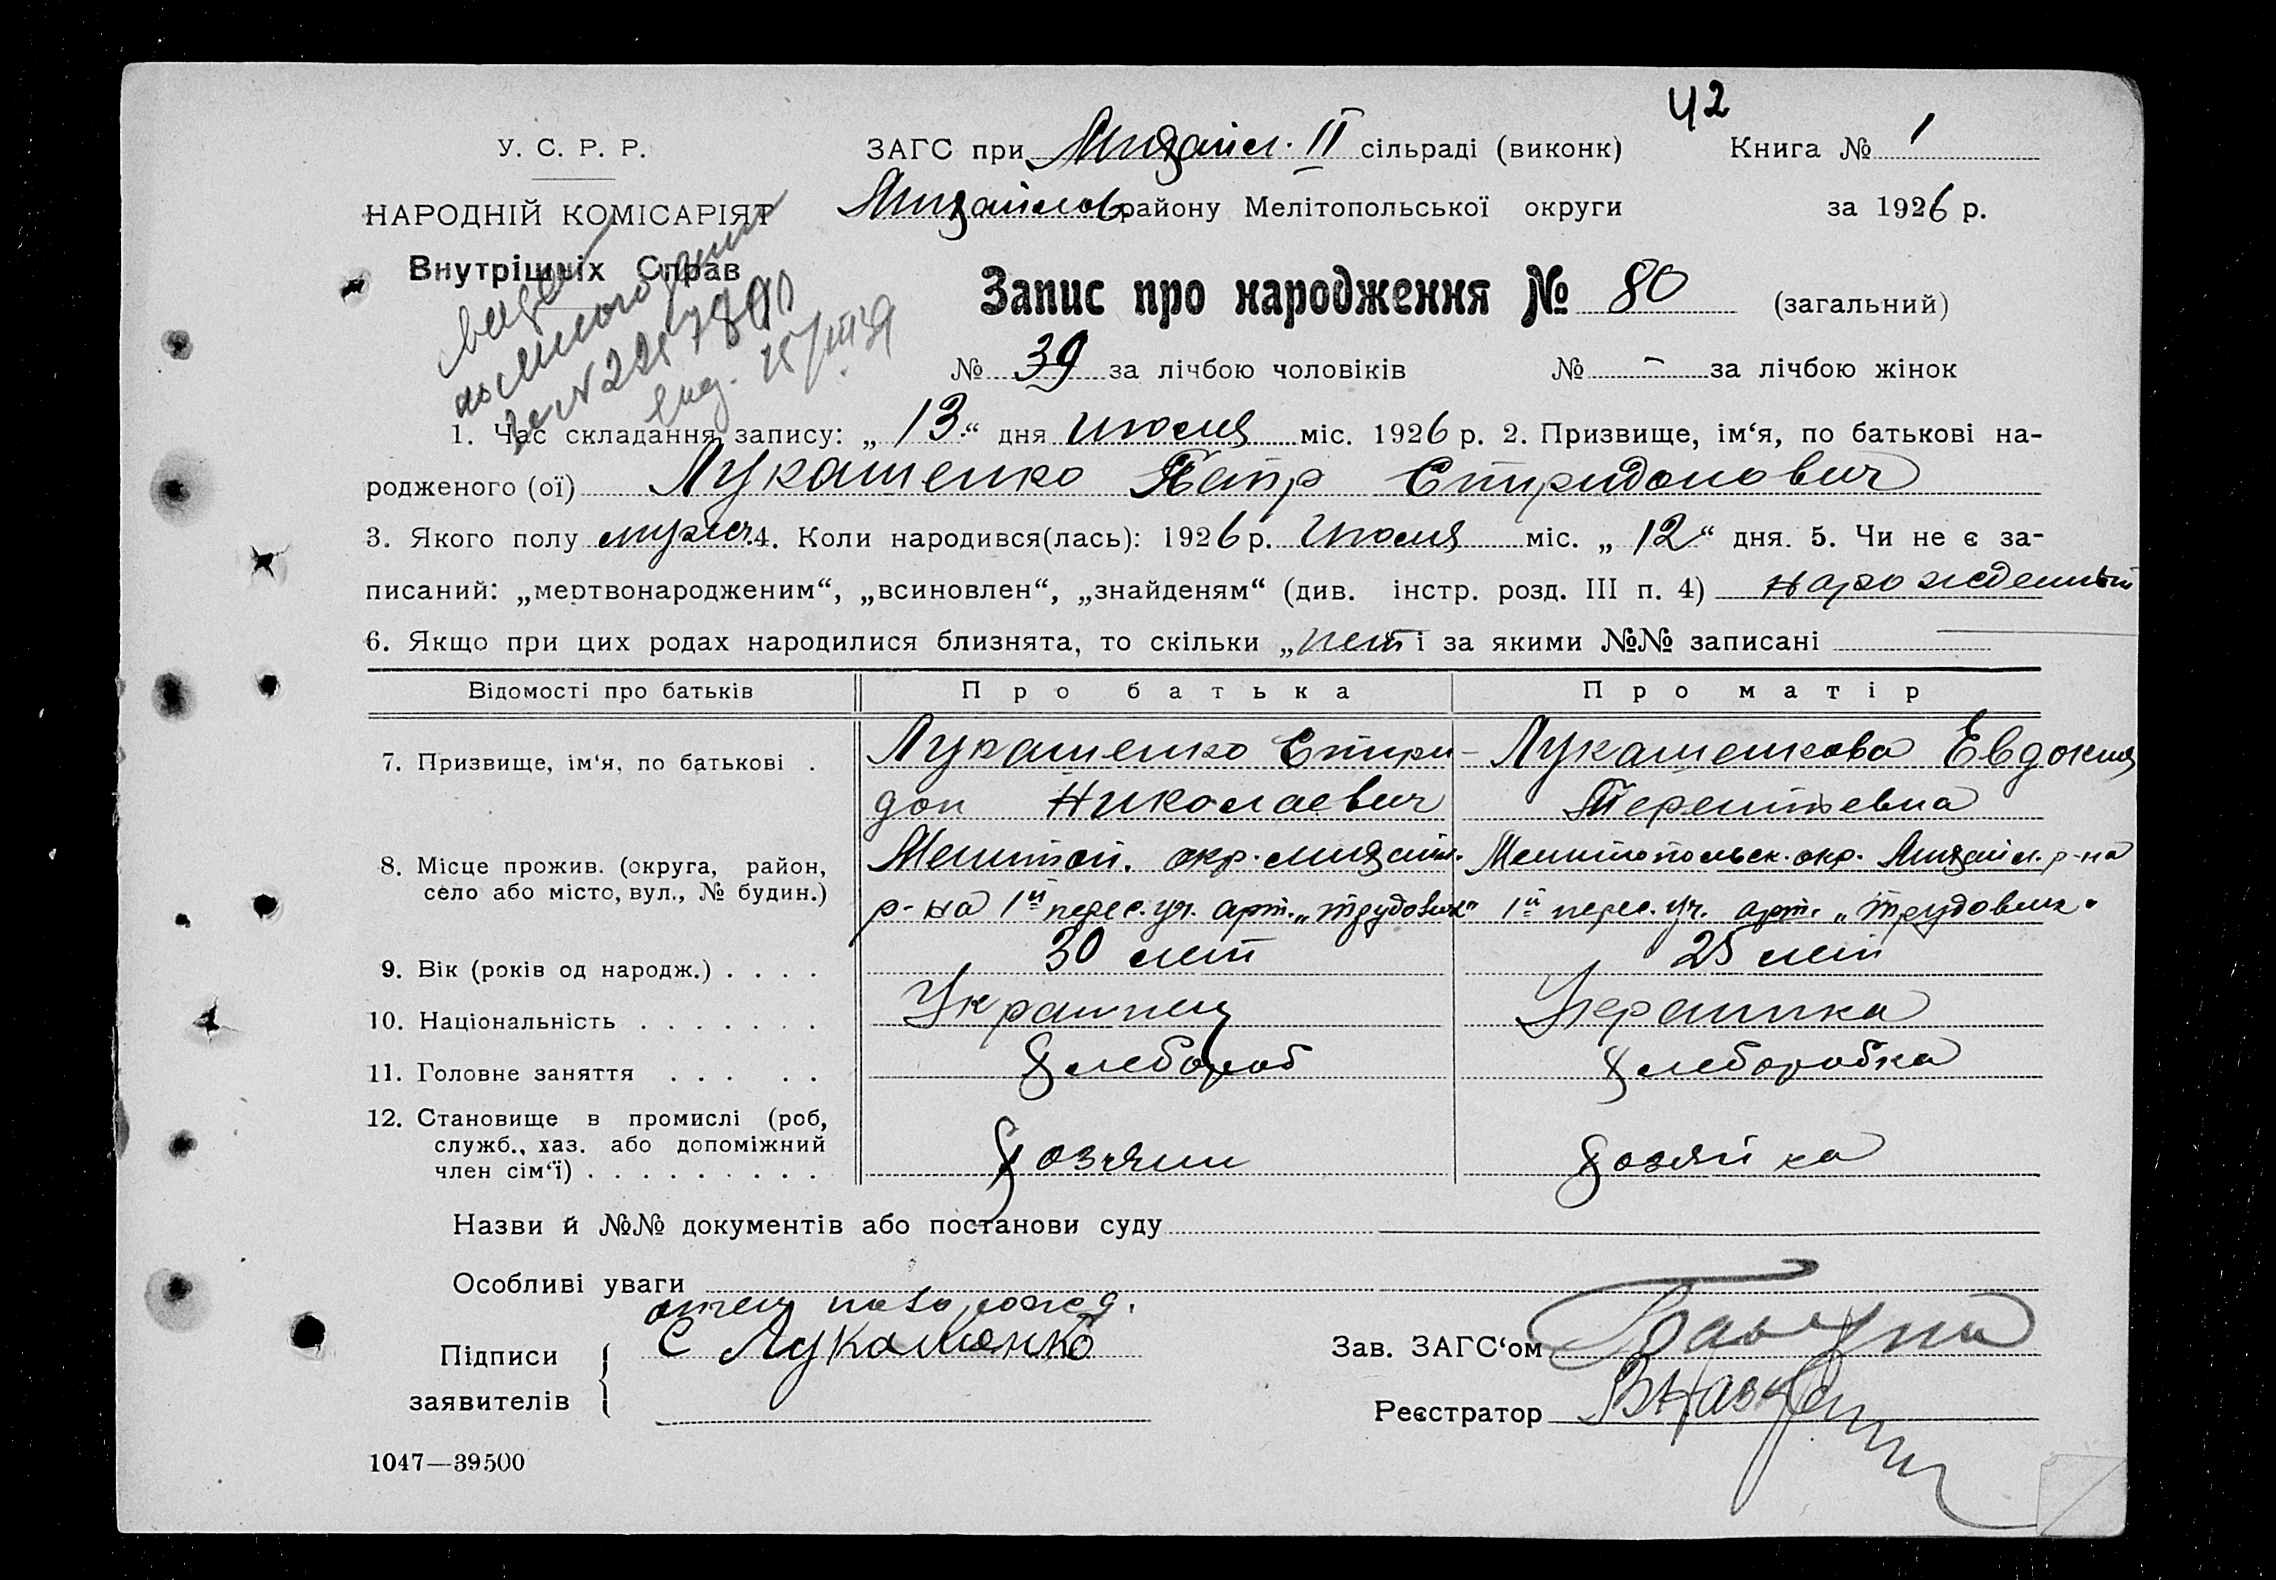 42
У. С. Р. Р.
ЗАГС при Михайл. II сільраді (виконк) Книга № 1
НАРОДНІЙ КОМІСАРІЯТ Михайлов району Мелітопольської округи за 1926 р.
Внутрішніх Справ
Запис про народження № 80 (загальний)
№ 39 за лічбою чоловіків № – за лічбою жінок
1. Час складання запису: „ 13 “ дня июля міс. 1926 р. 2. Призвище, ім‘я, по батькові на-
родженого (ої) Лукашенко Петр Спиридонович
3. Якого полу мужск. 4. Коли народився(лась): 1926 р. Июля міс. „ 12 “ дня. 5. Чи не є за-
писаний: „мертвонародженим“, „всиновлен“, „знайденям“ (див. інстр. розд. III п. 4) нарожденный
6. Якщо при цих родах народилися близнята, то скільки „ нет і за якими №№ записані
Відомості про батьків Про батька Про матір
7. Призвище, ім‘я, по батькові . Лукашенко Спири- Лукашенкова Евдокия
дон Николаевич Терентьевна
8. Місце прожив. (округа, район, Мелитоп. окр. Михайл. Мелитопольск. окр. Михайл. р-на
село або місто, вул., № будин.) р-на 1й перес. уч. арт. „Трудовик“ 1й перес. уч. арт. „Трудовик“
9. Вік (років од народж.) . . . . 30 лет 25 лет
10. Національність . . . . . . . Украинец Украинка
11. Головне заняття . . . . . Хлебороб Хлеборобка
12. Становище в промислі (роб,
служб., хаз. або допоміжний
член сім‘ї) . . . . . . . . . Хозяин Хозяйка
Назви й №№ документів або постанови суду
Особливі уваги
отец новорожд.
Підписи С Лукашенко Зав. ЗАГС‘ом
заявителів Реєстратор
1047—39500